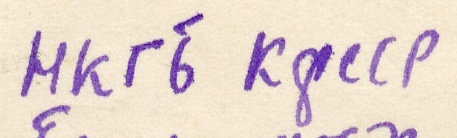 НКГБ КфССР